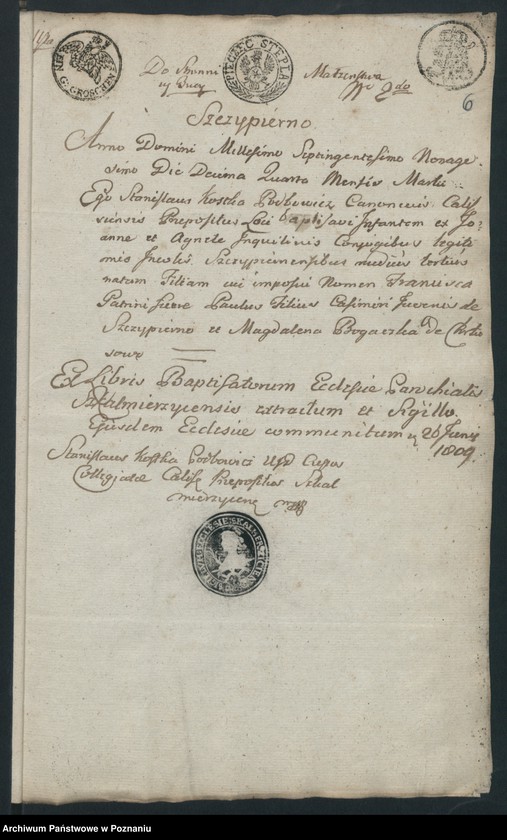 G: GROSCHEN
PIECZĘĆ STEPLA
Małżeństwa
Nr 2do
6
Szczypierno
Anno Domini Millesimo Septingentesimo Novage
simo Die Decima Quarta Mensis Martii
Ego Stanislaus Kostka Canonicus Calis
siensis Prepositus Loci baptisavi Infantem ex Jo:
anne et Agnete Inquilinis Conjugibus legiti
mis Incolis Szczypiernensibus
natam Filiam cui imposui Nomen Francisca
Patrini fuere Paulus Filius Casimiri Juvenis de
Szczypierno et Magdalena Bogaczka de
sowo
Ex Libris Baptisatorum Ecclesie Parochialis
Skalmierzycensis extractum et Sigillo
Ejusdem Ecclesie communitum 26 Junij
1809
Stanislaus Kostka
Collegiatae Calis Prepositus Skal
mierzycens
Archiwum Państwowe w Poznaniu